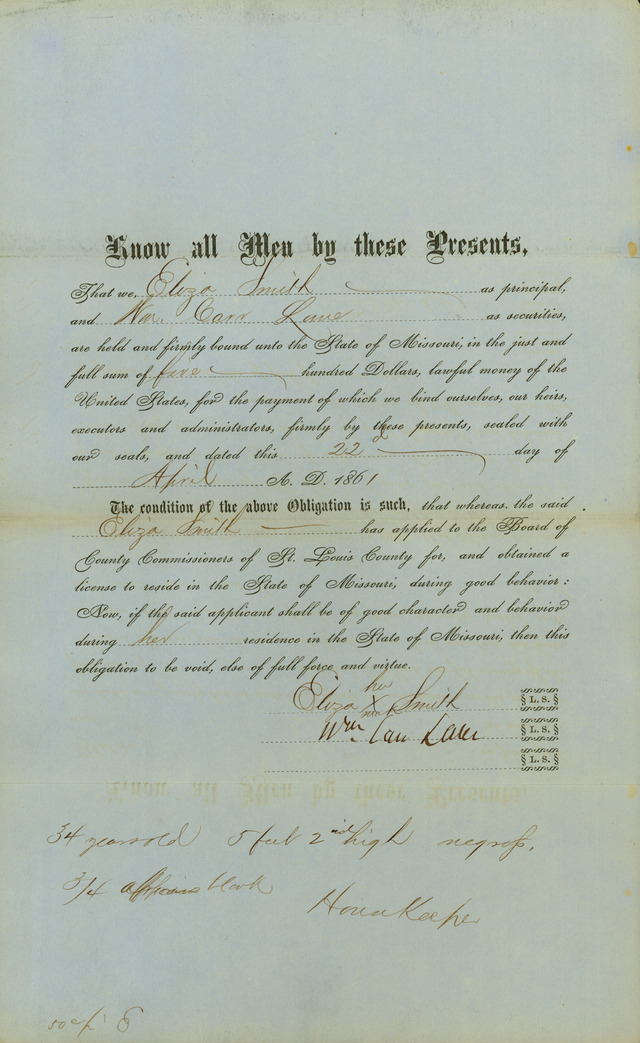 Know all Men by these Presents,
That we, Eliza Smith as principal,
and Wm. Carr Lane as securities,
are held and firmly bound unto the State of Missouri, in the just and
full sum of five hundred Dollars, lawful money of the
United States, for the payment of which we bind ourselves, our heirs,
executors and administrators, firmly by these presents, sealed with
our seals, and dated this 22 day of
April A. D. 1861
The condition of the above Obligation is such, that whereas, the said
Eliza Smith has applied to the Board of
County Commissioners of St. Louis County for, and obtained a
license to reside in the State of Missouri, during good behavior:
Now, if the said applicant shall be of good character and behavior
during her residence in the State of Missouri, then this
obligation to be void, else of full force and virtue.
her
Eliza X Smith L. S.
mark
Wm. Carr Lane L. S.
L. S.
34 years old 5 feet 2 high negress,
3/4
House Keeper